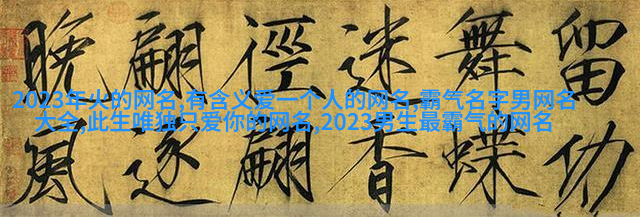 2023年火的网名,有含义爱一个人的网名,霸气名字男网名
大全,此生唯独只爱你的网名,2023男生最霸气的网名
留功
舞蝶
迷香
徑翩
翩逐
晚風